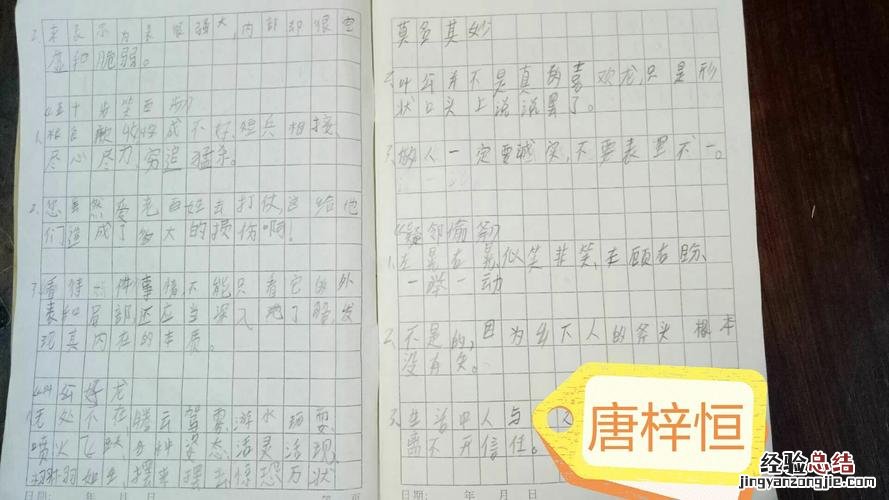 2、来表示为表 强大,内部却很空
虚和脆弱。
《五十步笑百步》
1、 不好,短兵相接、
尽心尽力、穷追猛杀。
2、您虽然爱 百姓去打仗,这给他
们造成了多大的损伤啊!
3、看待一件事情,不能只看它的外
表和局部,还应当深入地了解,发
现其内在的本质。
《叶公好龙》
无处不在,腾云驾雾、游水玩耍、
喷火飞跃、各种姿态、活灵活现、
栩栩如生、摆来摆去、惊恐万状
日期: 年 月 日
莫名其妙
2、叶公并不是真的喜欢龙,只是形
状口头上说说罢了。
3、做人一定要诚实,不要表里不一。
《疑邻偷斧》
1、左晃右晃、似笑非笑、左顾右盼、
一举一动
2、不是的,因为乡下人的斧头根本
没有失。
3、生活中人与 人
离不开信任。
日期: 年 月 日
唐梓恒
经验总结
jingyanzongjie.com